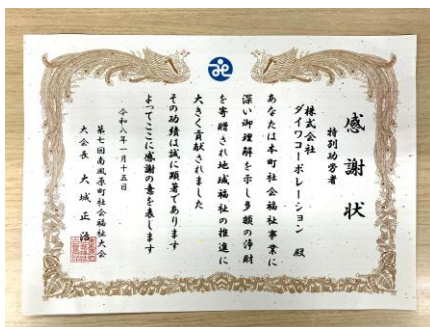 感謝状
特別功労者
株式会社
ダイワコーポレーション 殿
あなたは本町社会福祉事業に
深い御理解を示し多額の浄財
を寄贈され地域福祉の推進に
大きく貢献されました
その功績は誠に顕著であります
よってここに感謝の意を表します
令和八年一月十五日
第七回南風原町社会福祉大会
大会長 大城正治